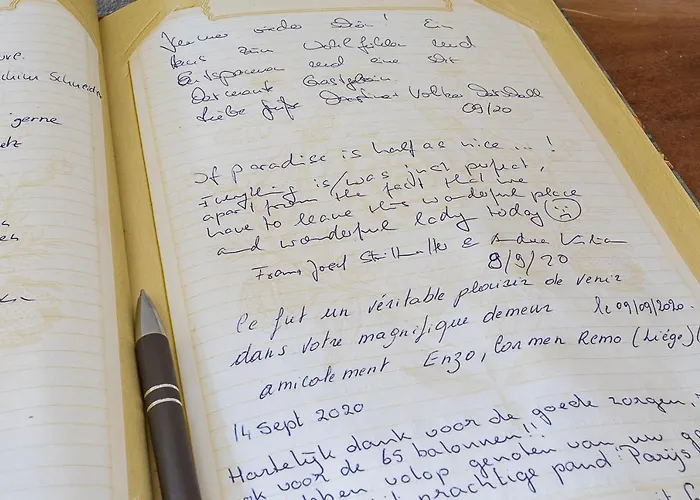 uve.
Schneider
gerne
Immer wieder schön! Ein
Haus zum Wohlfühlen und
Entspannen und eine
Gastgeberin.
Liebe Grüße Volker
09/20
If paradise is half as nice ... !
Everything is/was just perfect,
apart from the fact that we
have to leave this wonderful place
and wonderful lady today
Franz Josef &
8/9/20
Ce fut un véritable plaisir de venir
dans votre magnifique demeur le 09/09/2020.
amicalement Enzo, Carmen Remo (Liège)
14 Sept 2020
Hartelijk dank voor de goede zorgen,
ook voor de 65 balonnen!!
hebben volop genoten van uw
prachtige pand. Parijs